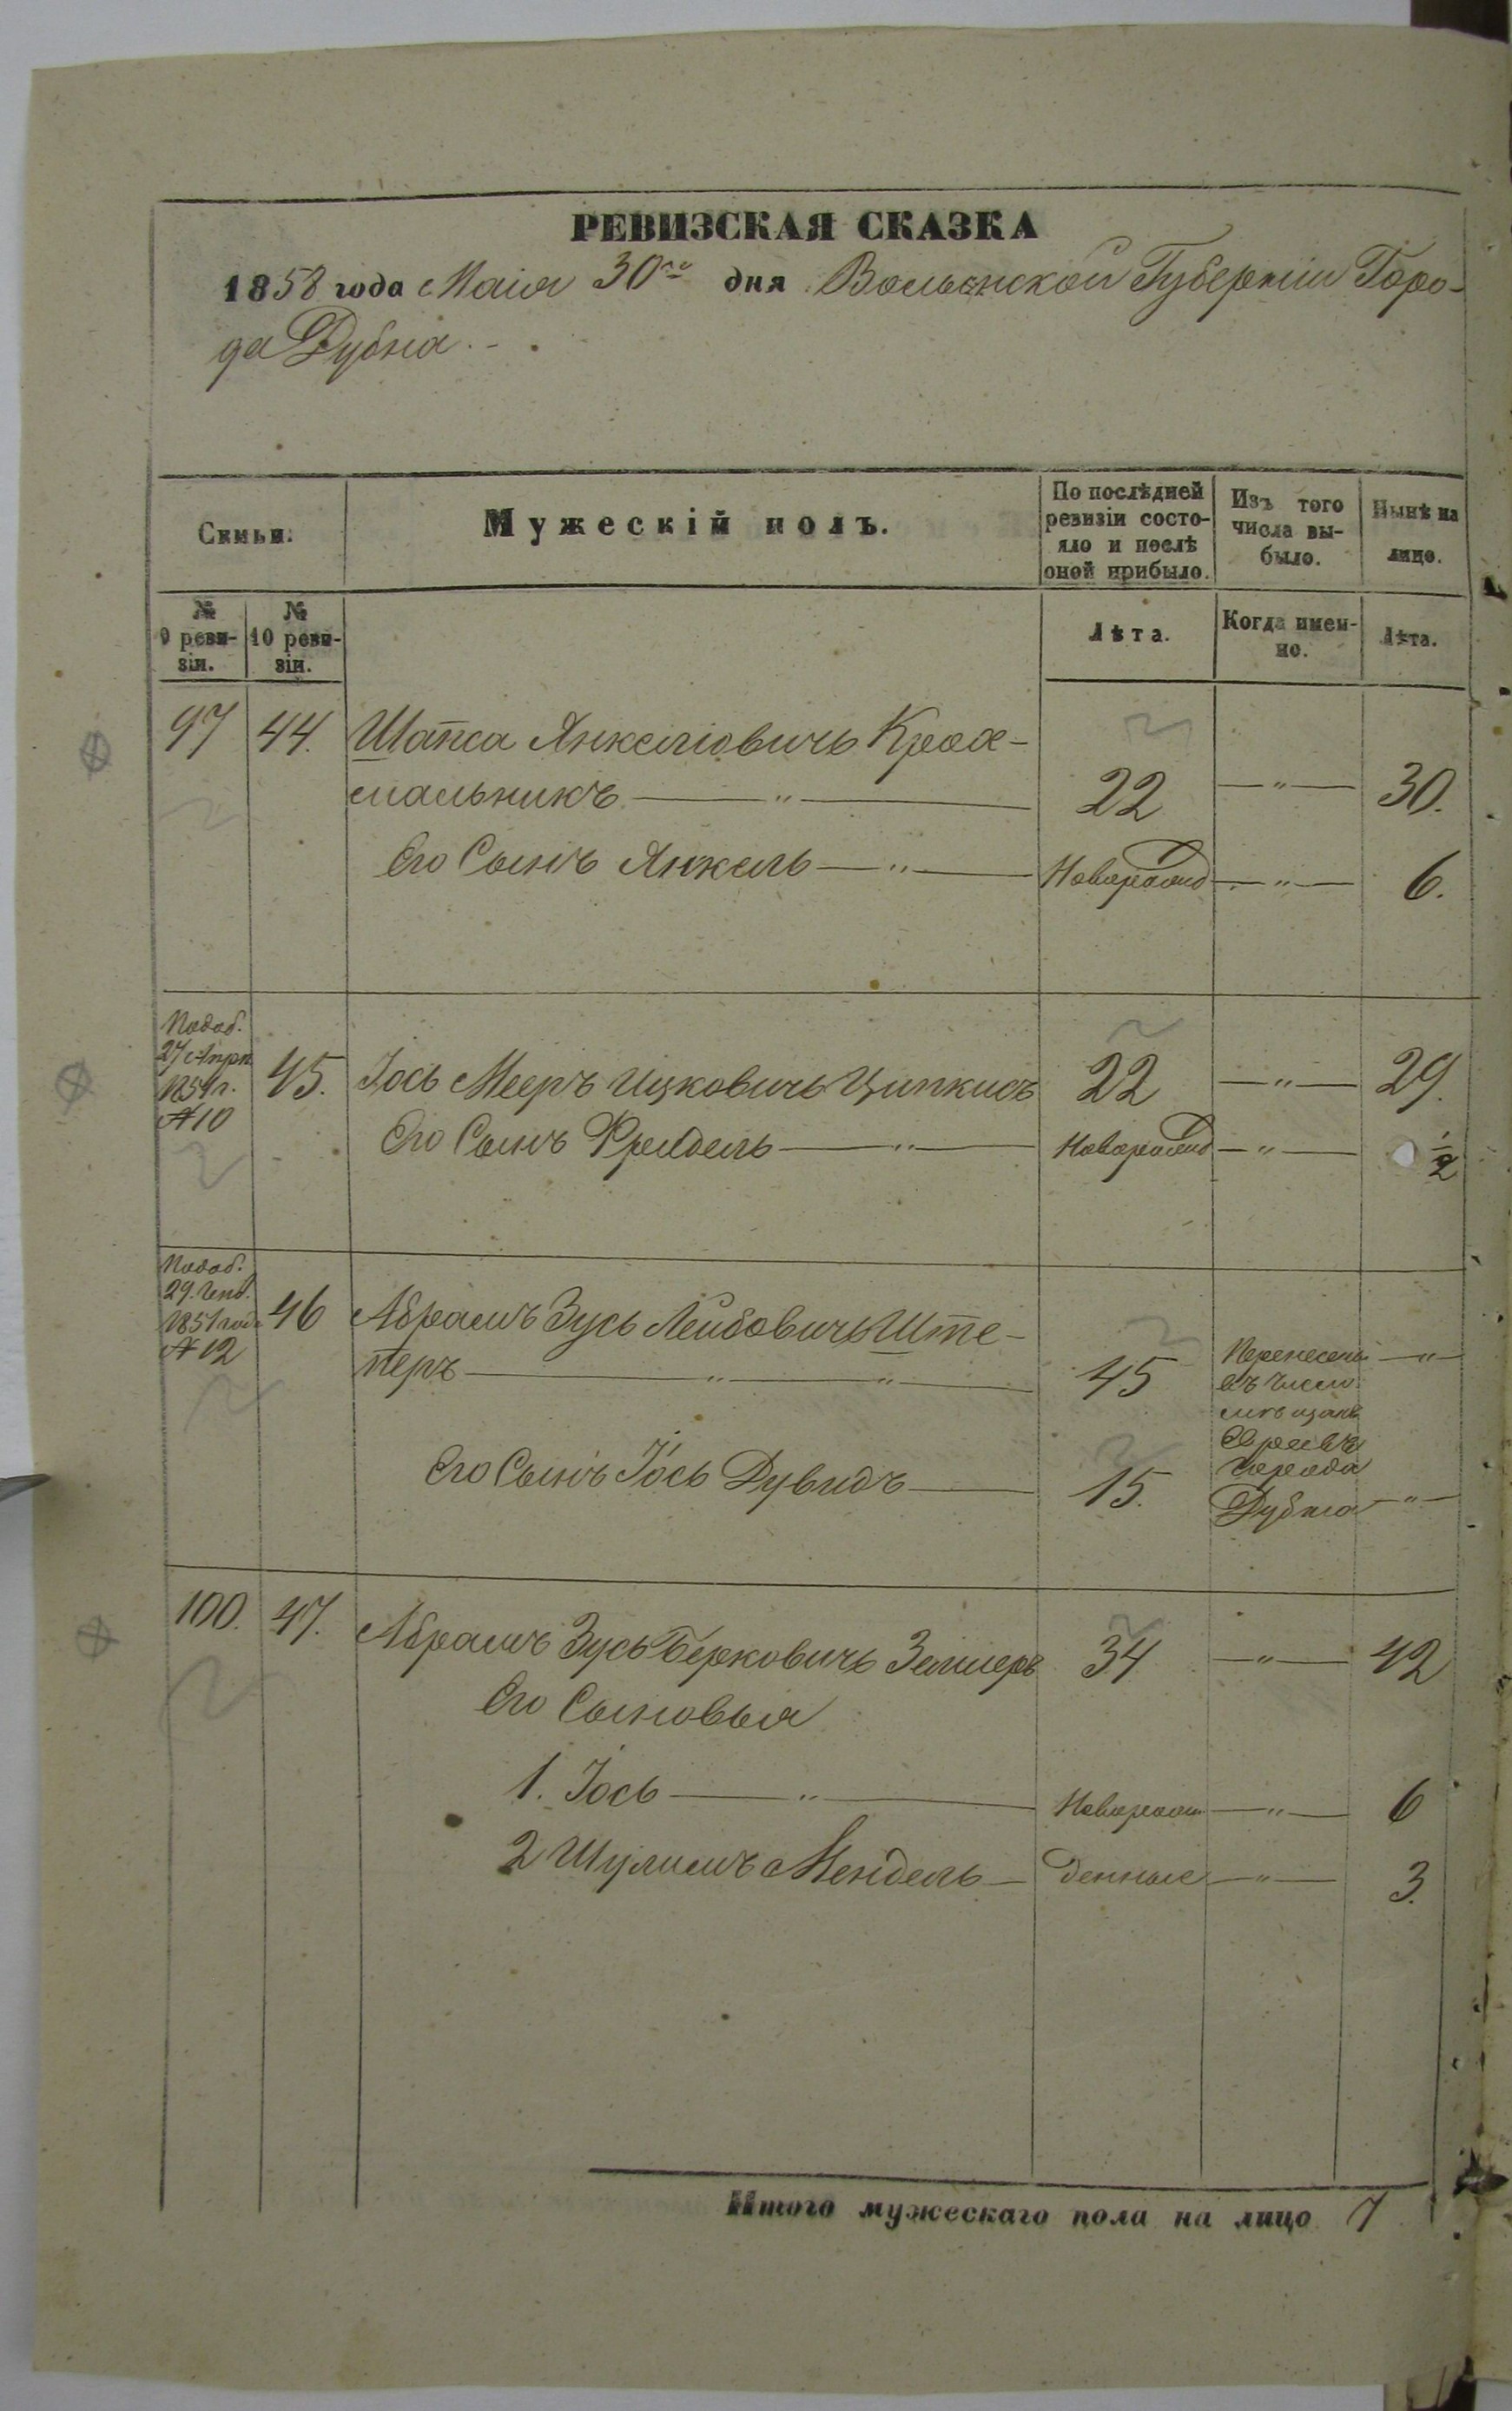 РЕВИЗСКАЯ СКАЗКА
1858 года Маія 30го дня Волынской Губерніи Горо-
да Дубна
Симьи.
Мужескій полъ.
По послѣдней ревизіи состо-
яло и послѣ оной прибыло.
Изъ того числа вы-
было.
Нынѣ на лицо.
№ 9 реви-
зіи.
№ 10 реви-
зіи.
Лѣта.
Когда имен-
но.
Лѣта.
97 44. Шапса Янкеліовичъ Крох-
мальникъ — " — 22 — " — 30.
Его Сынъ Янкель — " — Новорожд — " — 6.
Подоб.
27 Апрл
185 г.
№ 10
45. Іось Мееръ Ицковичъ Ципкисъ 22 — " — 29.
Его Сынъ Фрейдель — " — Новорожд — " — 1/2
Подоб.
29. Генв.
1851 года
№ 12
46 Абрамъ Зусь Лейбовичъ Ште-
перъ — " — " — 45
Перенесены — " —
въ число
мѣщанъ
Евреевъ
города
Дубна — " —
Его Сынъ Іось Дувидъ — 15.
100. 47. Абрамъ Зусь Берковичъ Зелцеръ 34 — " — 42
Его Сыновья
1. Іось — " — Новорож — " — 6
2 Шулимъ Мендель — денные — " — 3.
Итого мужескаго пола на лицо 7